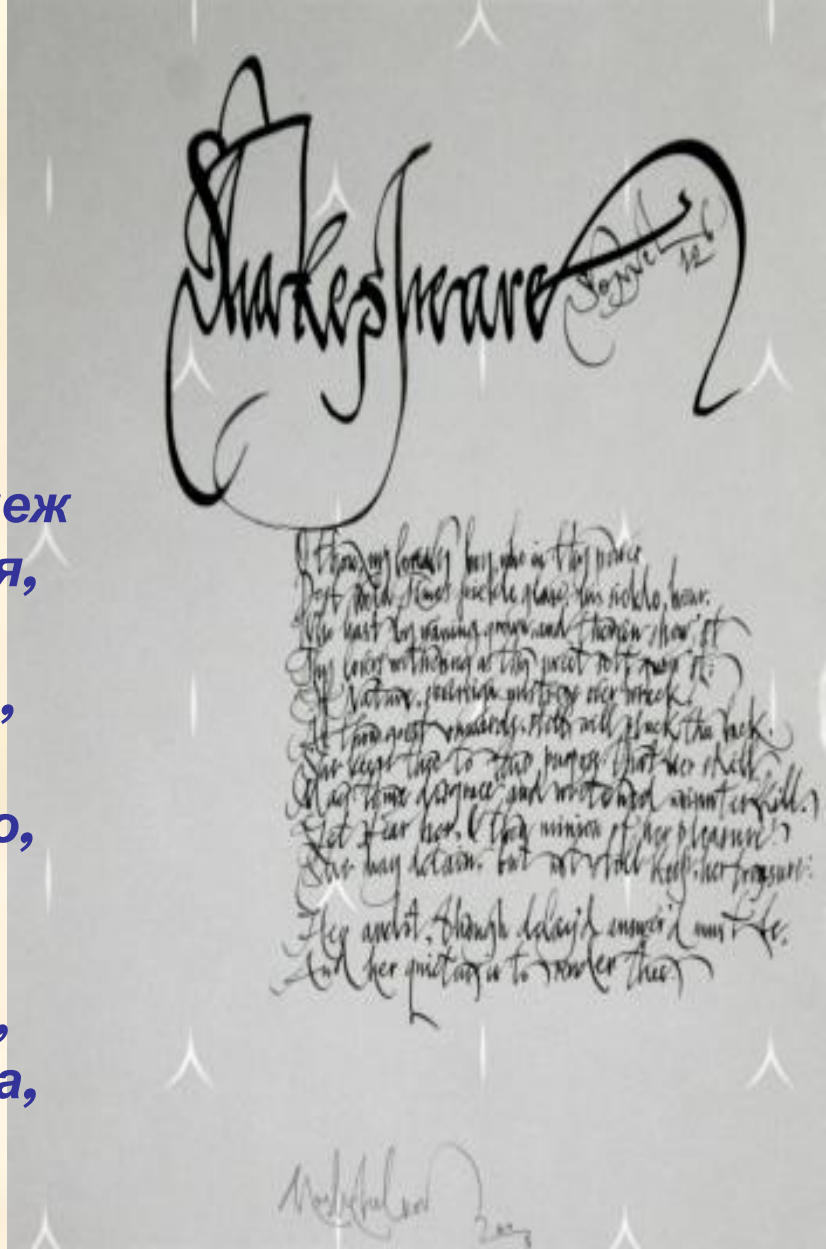 Shakespeare
Sonnet 126
еж
я,
,
о,
,
а,
O thou, my lovely boy, who in thy power
Dost hold Time's fickle glass, his sickle, hour;
Who hast by waning grown, and therein show'st
Thy lovers withering as thy sweet self grow'st;
If Nature, sovereign mistress over wreck,
As thou goest onwards, still will pluck thee back.
She keeps thee to this purpose, that her skill
May time disgrace and wretched minutes kill.
Yet fear her, O thou minion of her pleasure!
She may detain, but not still keep, her treasure:
Her audit, though delay'd, answer'd must be,
And her quietus is to render thee.